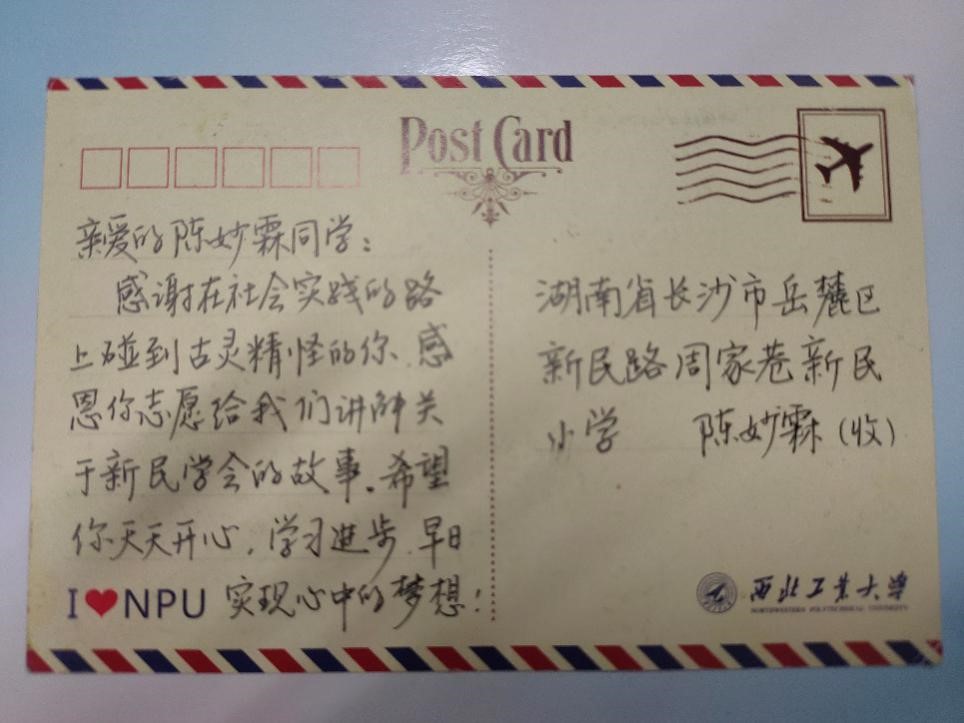 Post Card
亲爱的陈妙霖同学：
感谢在社会实践的路
上碰到古灵精怪的你、感
恩你志愿给我们讲解关
于新民学会的故事。希望
你天天开心，学习进步，早日
实现心中的梦想！
I ❤ NPU
湖南省长沙市岳麓区
新民路周家巷新民
小学 陈妙霖（收）
西北工业大学
NORTHWESTERN POLYTECHNICAL UNIVERSITY